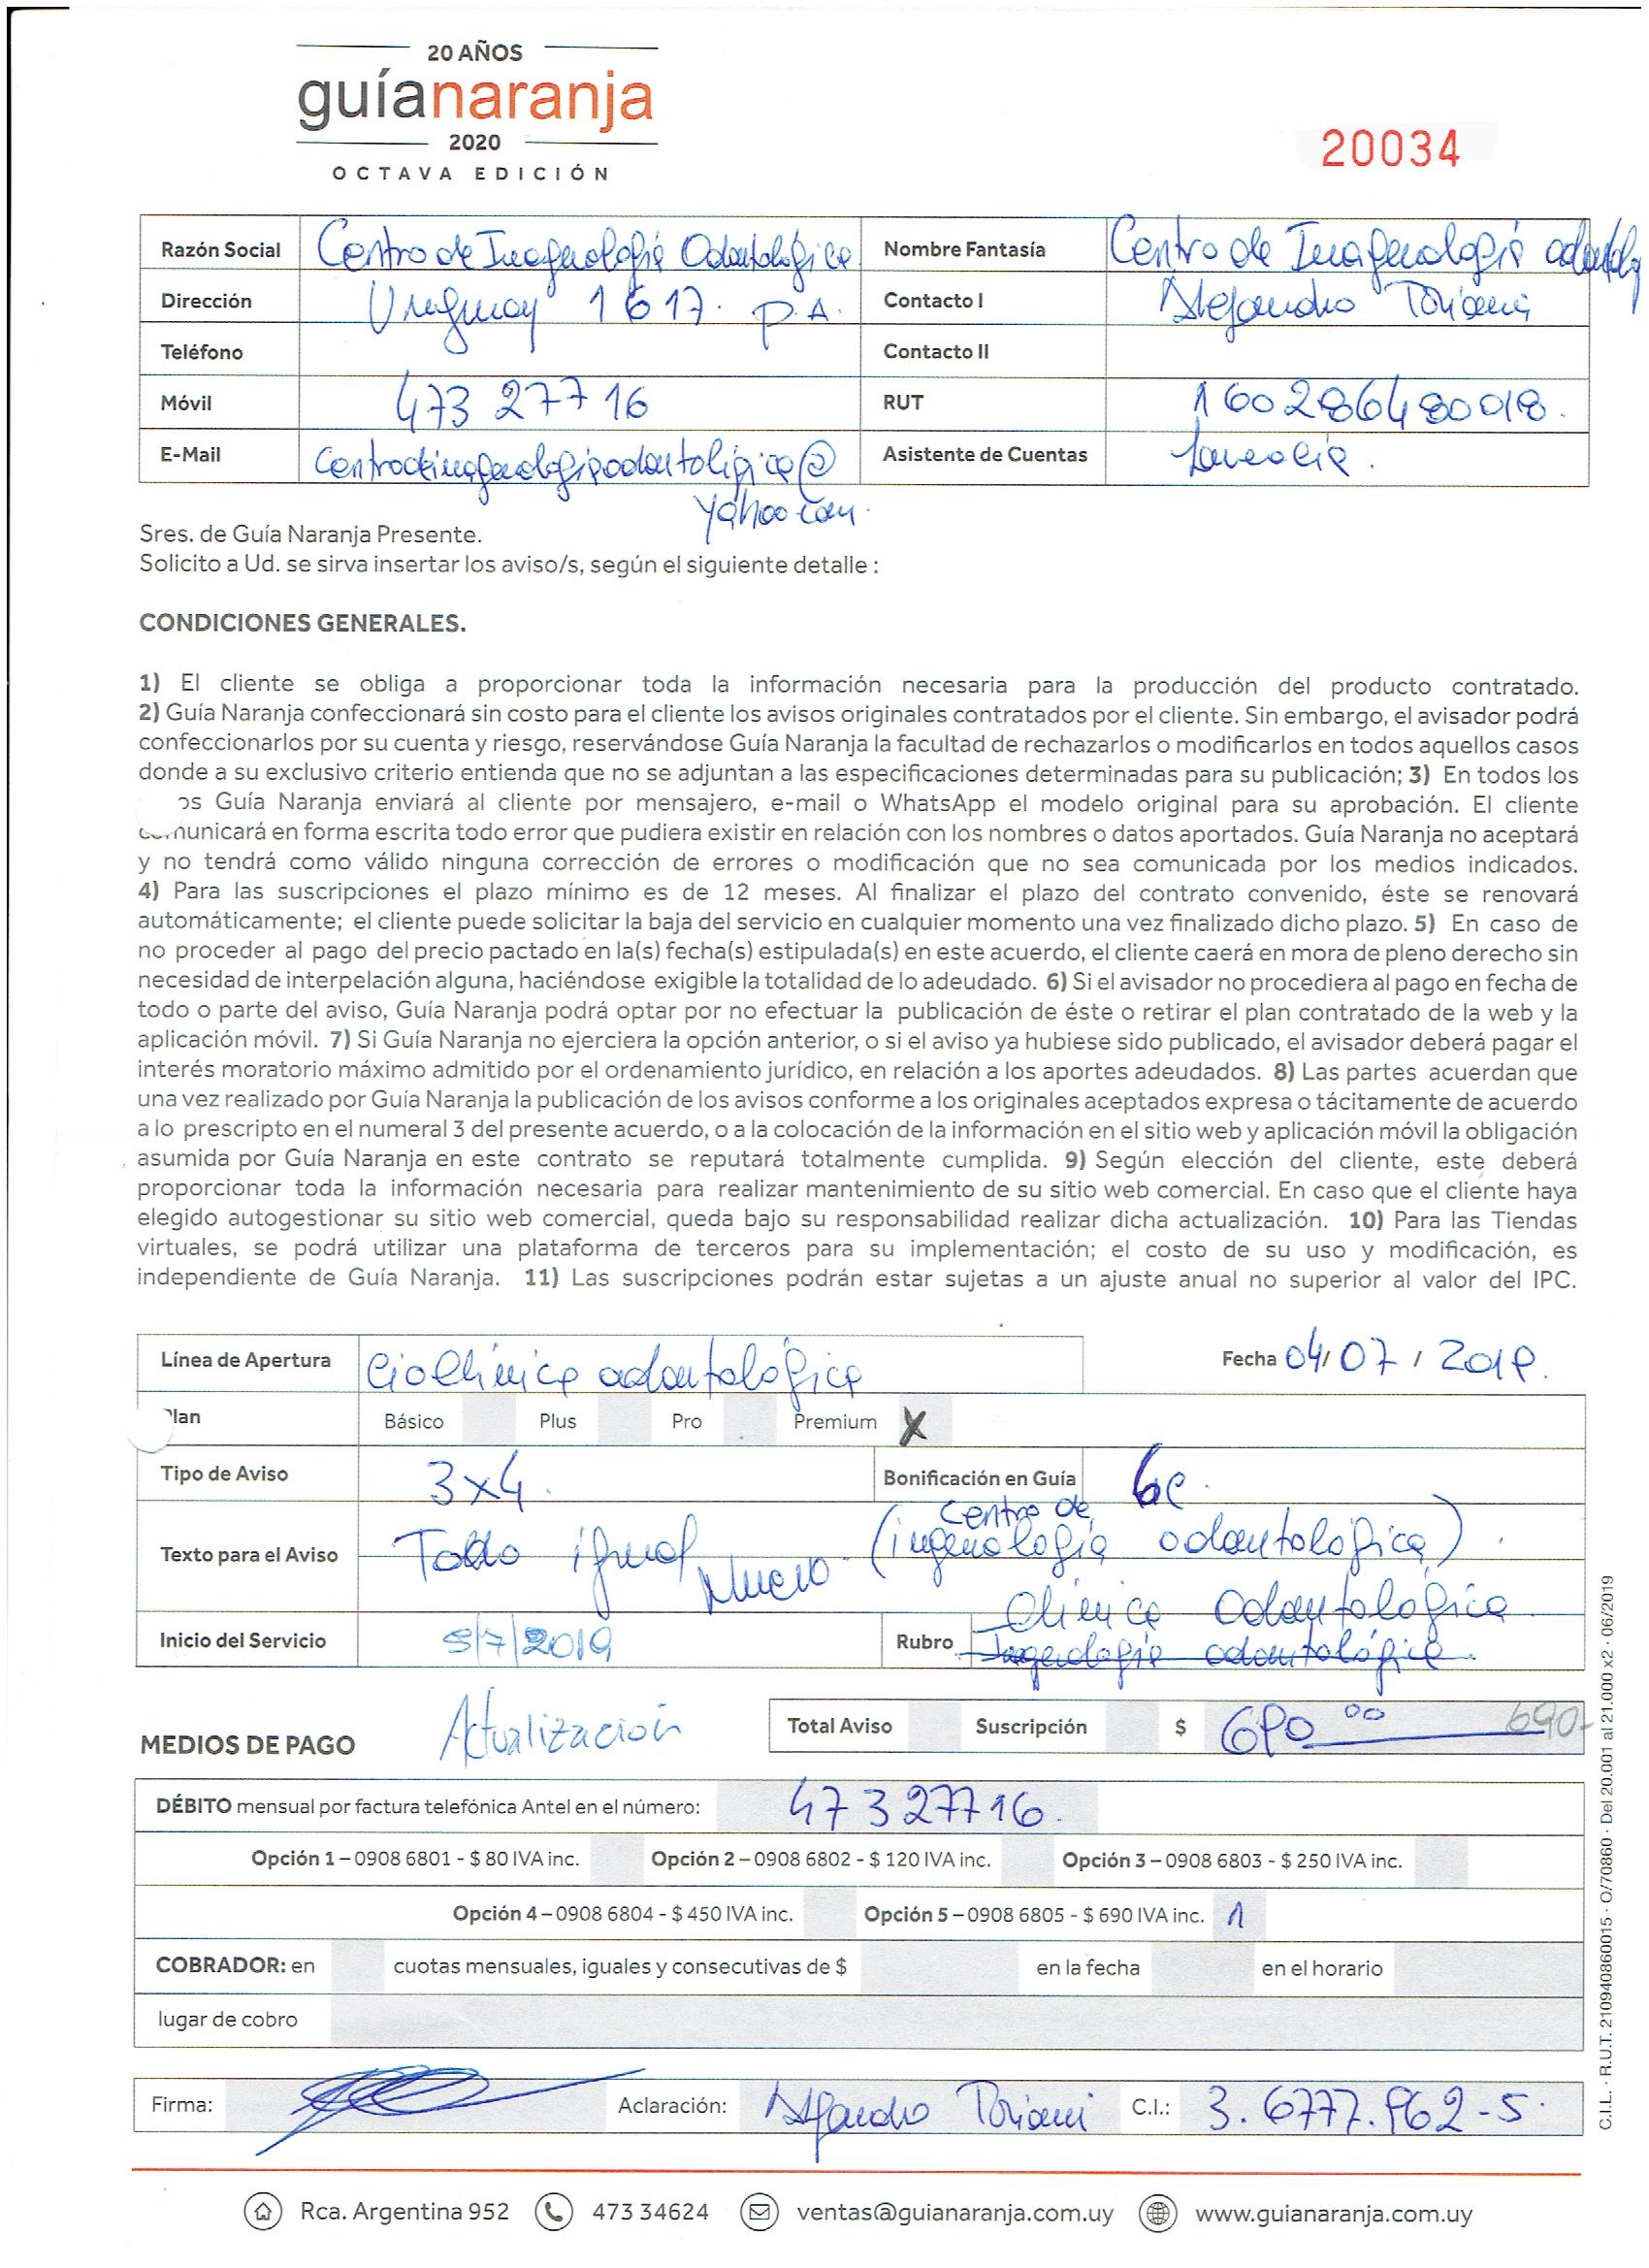 20 AÑOS
guíanaranja
2020
OCTAVA EDICIÓN
20034
Razón Social Centro de Imagenología Odontológica Nombre Fantasía Centro de Imagenología odontolog
Dirección Uruguay 1617. P.A. Contacto I Alejandro Toriani
Teléfono Contacto II
Móvil 473 27716 RUT 160286480018.
E-Mail centrodeimagenologiaodontologica@ Asistente de Cuentas
yahoo.com.
Sres. de Guía Naranja Presente.
Solicito a Ud. se sirva insertar los aviso/s, según el siguiente detalle :
CONDICIONES GENERALES.
1) El cliente se obliga a proporcionar toda la información necesaria para la producción del producto contratado.
2) Guía Naranja confeccionará sin costo para el cliente los avisos originales contratados por el cliente. Sin embargo, el avisador podrá
confeccionarlos por su cuenta y riesgo, reservándose Guía Naranja la facultad de rechazarlos o modificarlos en todos aquellos casos
donde a su exclusivo criterio entienda que no se adjuntan a las especificaciones determinadas para su publicación; 3) En todos los
os Guía Naranja enviará al cliente por mensajero, e-mail o WhatsApp el modelo original para su aprobación. El cliente
comunicará en forma escrita todo error que pudiera existir en relación con los nombres o datos aportados. Guía Naranja no aceptará
y no tendrá como válido ninguna corrección de errores o modificación que no sea comunicada por los medios indicados.
4) Para las suscripciones el plazo mínimo es de 12 meses. Al finalizar el plazo del contrato convenido, éste se renovará
automáticamente; el cliente puede solicitar la baja del servicio en cualquier momento una vez finalizado dicho plazo. 5) En caso de
no proceder al pago del precio pactado en la(s) fecha(s) estipulada(s) en este acuerdo, el cliente caerá en mora de pleno derecho sin
necesidad de interpelación alguna, haciéndose exigible la totalidad de lo adeudado. 6) Si el avisador no procediera al pago en fecha de
todo o parte del aviso, Guía Naranja podrá optar por no efectuar la publicación de éste o retirar el plan contratado de la web y la
aplicación móvil. 7) Si Guía Naranja no ejerciera la opción anterior, o si el aviso ya hubiese sido publicado, el avisador deberá pagar el
interés moratorio máximo admitido por el ordenamiento jurídico, en relación a los aportes adeudados. 8) Las partes acuerdan que
una vez realizado por Guía Naranja la publicación de los avisos conforme a los originales aceptados expresa o tácitamente de acuerdo
a lo prescripto en el numeral 3 del presente acuerdo, o a la colocación de la información en el sitio web y aplicación móvil la obligación
asumida por Guía Naranja en este contrato se reputará totalmente cumplida. 9) Según elección del cliente, este deberá
proporcionar toda la información necesaria para realizar mantenimiento de su sitio web comercial. En caso que el cliente haya
elegido autogestionar su sitio web comercial, queda bajo su responsabilidad realizar dicha actualización. 10) Para las Tiendas
virtuales, se podrá utilizar una plataforma de terceros para su implementación; el costo de su uso y modificación, es
independiente de Guía Naranja. 11) Las suscripciones podrán estar sujetas a un ajuste anual no superior al valor del IPC.
Línea de Apertura Cio Clínica odontológica Fecha 04/07/2019.
Plan Básico Plus Pro Premium X
Tipo de Aviso 3x4. Bonificación en Guía 6c.
Centro de
Texto para el Aviso Todo igual Nuevo (ingenología odontológica).
Clínica Odontológica
Inicio del Servicio 5/7/2019 Rubro Ingenología odontológica.
MEDIOS DE PAGO Actualización Total Aviso Suscripción $ 690 00 690-
DÉBITO mensual por factura telefónica Antel en el número: 47327716.
Opción 1 – 0908 6801 - $ 80 IVA inc. Opción 2 – 0908 6802 - $ 120 IVA inc. Opción 3 – 0908 6803 - $ 250 IVA inc.
Opción 4 – 0908 6804 - $ 450 IVA inc. Opción 5 – 0908 6805 - $ 690 IVA inc. 1
COBRADOR: en cuotas mensuales, iguales y consecutivas de $ en la fecha en el horario
lugar de cobro
Firma: Aclaración: Alejandro Toriani C.I.: 3.677.962-5.
Rca. Argentina 952 473 34624 ventas@guianaranja.com.uy www.guianaranja.com.uy
C.I.L. · R.U.T. 210940860015 · O/70860 · Del 20.001 al 21.000 x2 · 06/2019